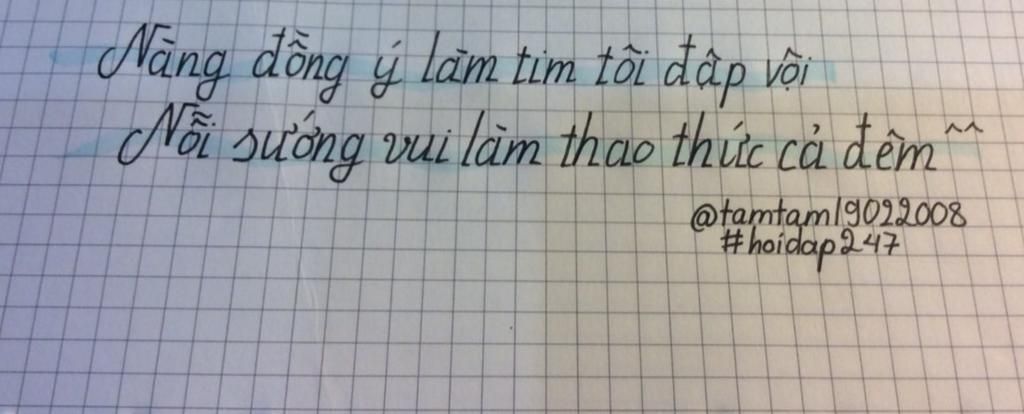 Nàng đồng ý làm tim tôi đập vội
Nỗi sướng vui làm thao thức cả đêm ^^
@tamtam19022008
#hoidap247